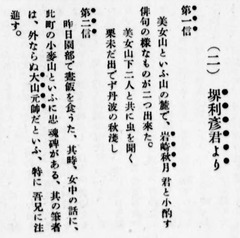 (二)　堺利彦君より
第一信
美女山といふ山の麓で、岩崎秋月君と小酌す
俳句の様なものが二つ出來た。
美女山下二人と共に虫を聞く
栗未だ出でず丹波の秋淺し
第二信
昨日園部で晝飯を食うた、其時、女中の話に、
此町の小麥山といふに忠魂碑がある、其の筆者
は、外ならぬ大山元師だといふ、特に吾兄に注
進す。